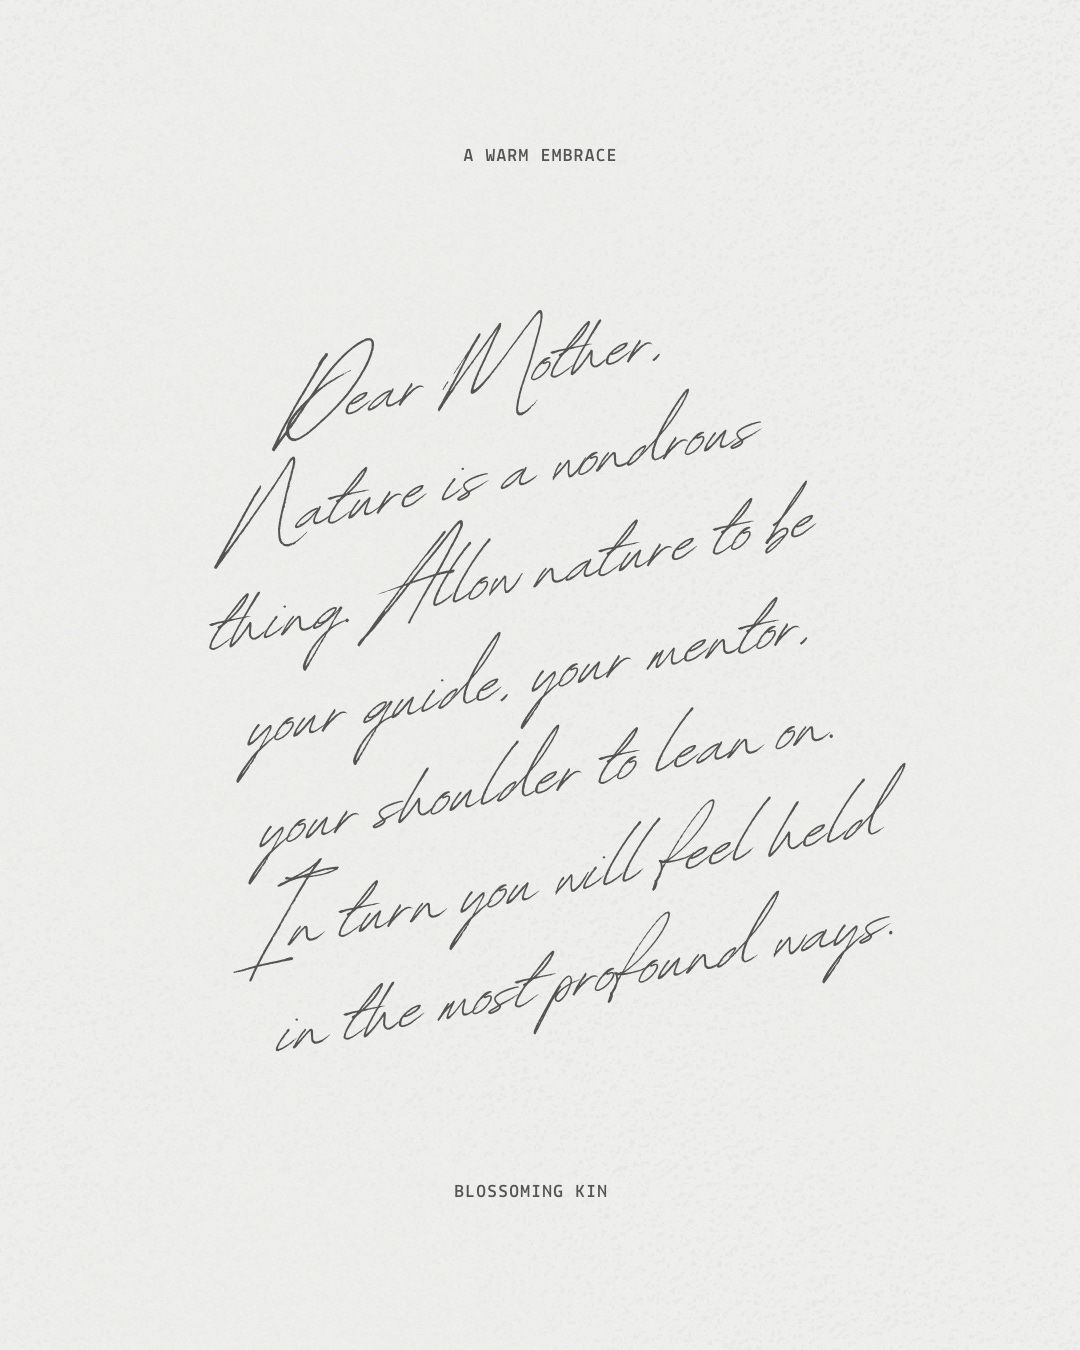 A WARM EMBRACE
Dear Mother,
Nature is a wondrous
thing. Allow nature to be
your guide, your mentor,
your shoulder to lean on.
In turn you will feel held
in the most profound ways.
BLOSSOMING KIN